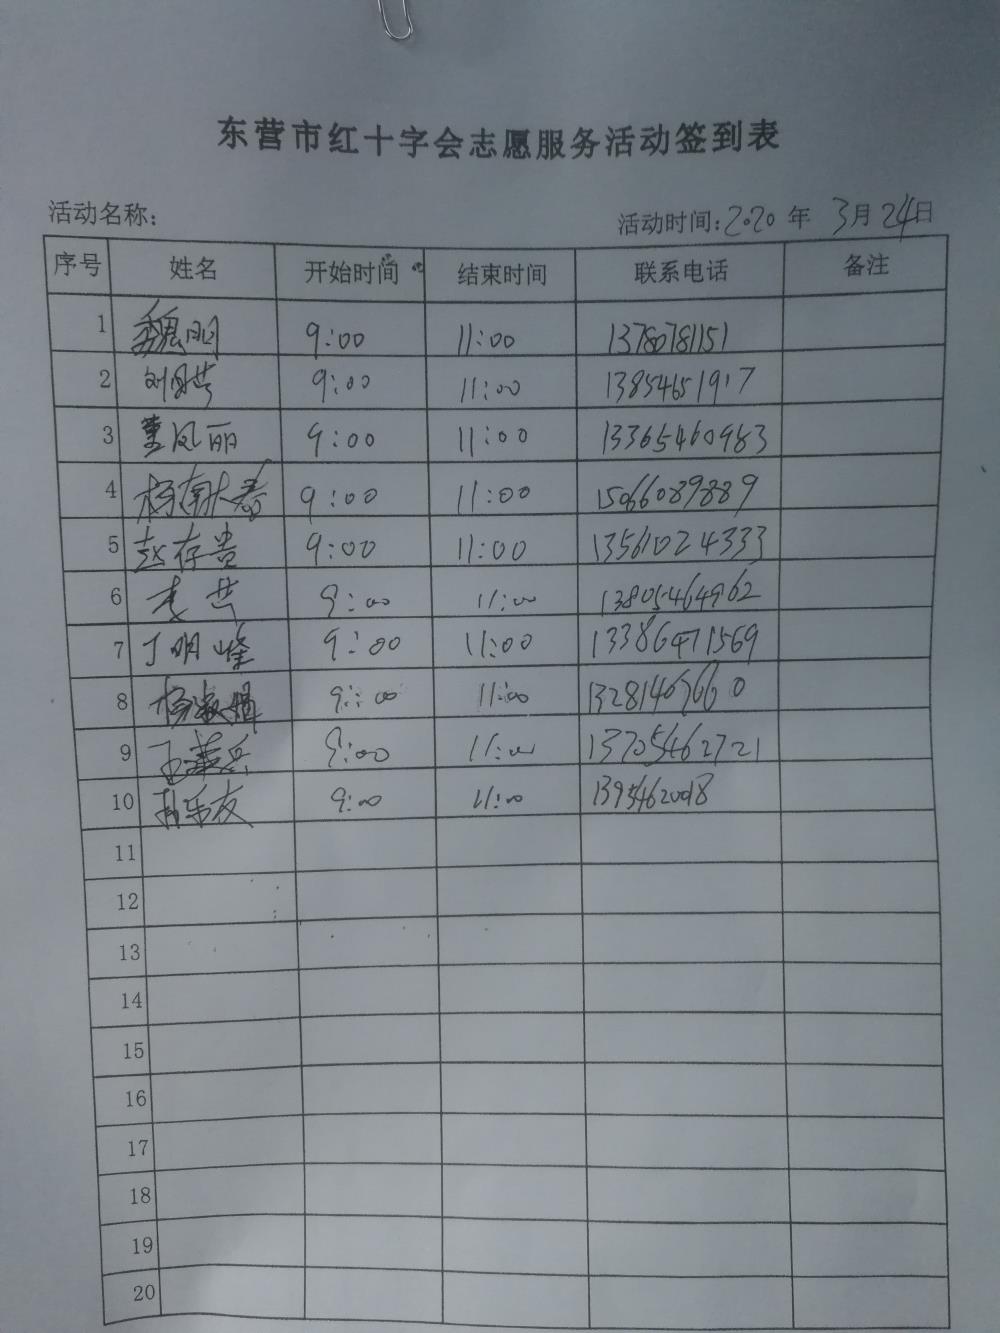 东营市红十字会志愿服务活动签到表
活动名称: 活动时间:2020 年 3月 24日
序号 姓名 开始时间 结束时间 联系电话 备注
1 魏明 9:00 11:00 13780781151
2 9:00 11:00 13854651917
3 董凤丽 9:00 11:00 13365460983
4 9:00 11:00 15066089889
5 赵存贵 9:00 11:00 13561024333
6 9:00 11:00 13805464962
7 丁明峰 9:00 11:00 13386471569
8 杨淑娟 9:00 11:00
9 9:00 11:00 13705462721
10 孙乐友 9:00 11:00 13954620018
11
12
13
14
15
16
17
18
19
20